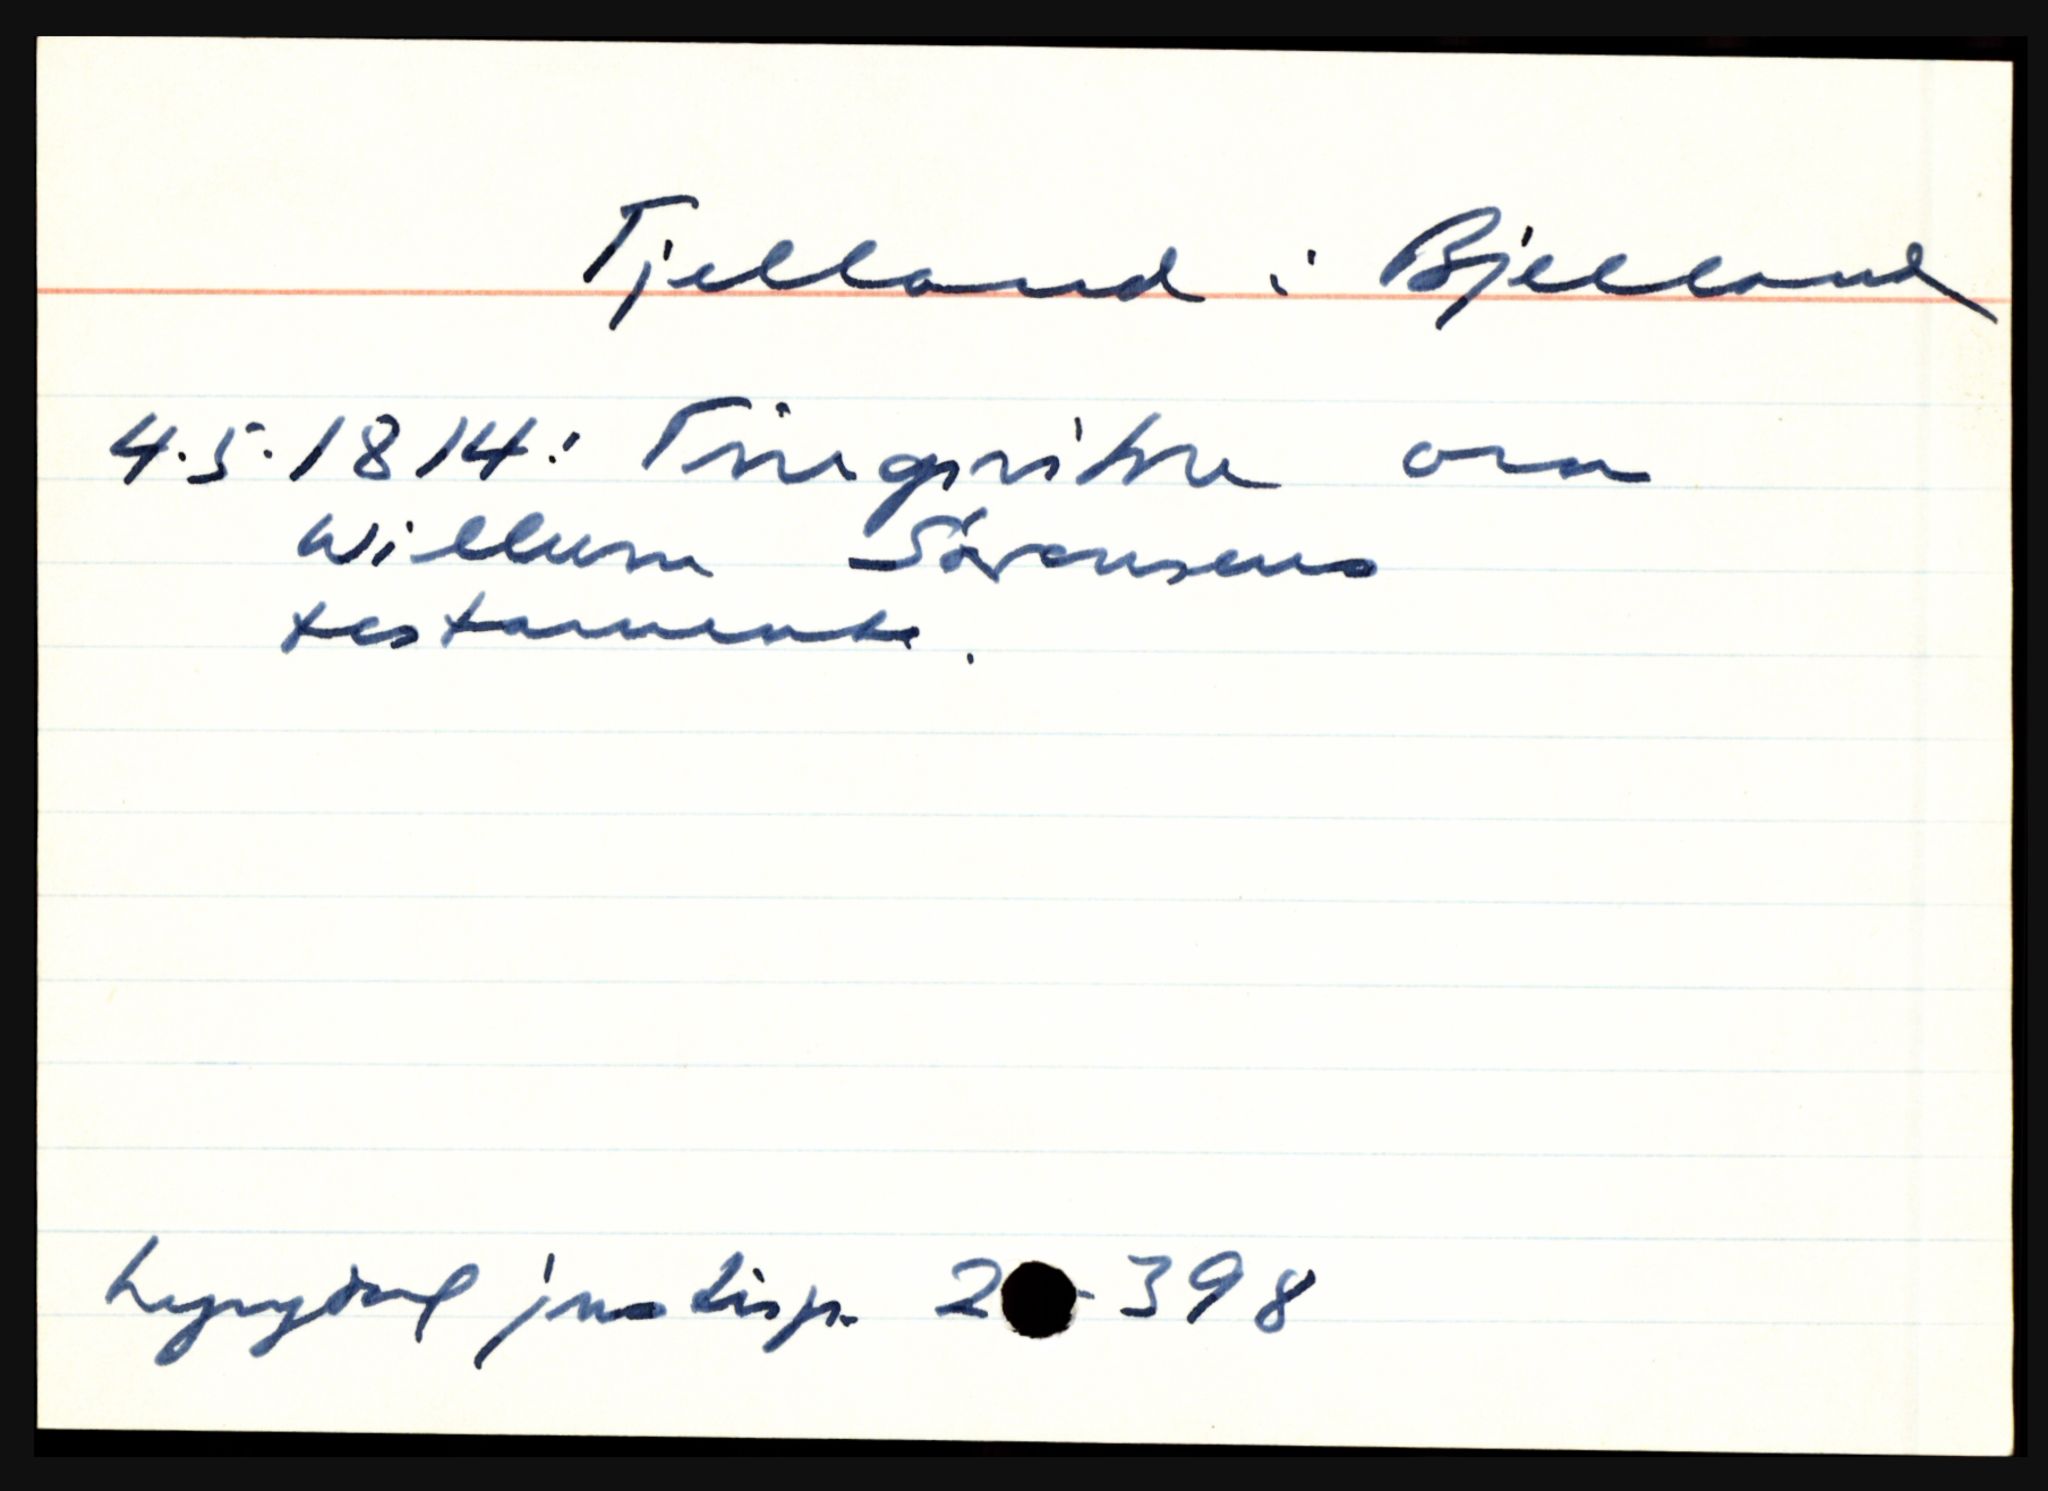 Tjelland i Bjelland
4.5.1814: Tingsvitne om
Willum Sørensens
testamente.
Lyngdal justisp. 2 - 398